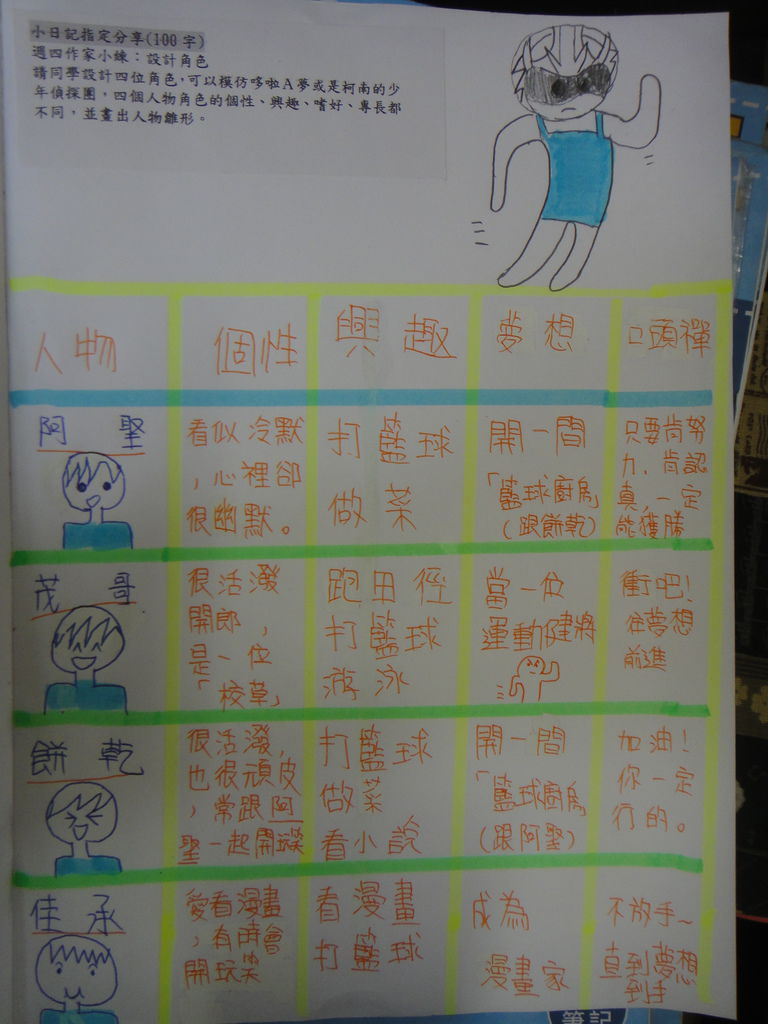 小日記指定分享(100字)
週四作家小練：設計角色
請同學設計四位角色，可以模仿哆啦A夢或是柯南的少
年偵探團，四個人物角色的個性、興趣、嗜好、專長都
不同，並畫出人物雛形。
人物
個性
興趣
夢想
口頭禪
阿聖
看似冷默
，心裡卻
很幽默。
打籃球
做菜
開一間
「籃球廚房」
(跟餅乾)
只要肯努
力，肯認
真，一定
能獲勝
茂哥
很活潑
開郎，
是一位
「校草」
跑田徑
打籃球
游泳
當一位
運動健將
衝吧!
往夢想
前進
餅乾
很活潑，
也很頑皮
，常跟阿
聖一起開玩笑
打籃球
做菜
看小說
開一間
「籃球廚房」
(跟阿聖)
加油!
你一定
行的。
佳承
愛看漫畫
，有時會
開玩笑
看漫畫
打籃球
成為
漫畫家
不放手~
直到夢想
到手
筆記